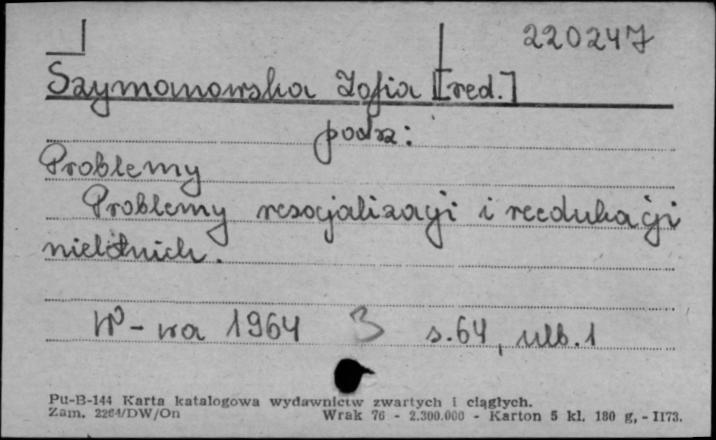 220247
Szymanowska Zofia [red.]
podz:
Problemy
Problemy resocjalizacji i reedukacji
nieletnich.
W-wa 1964 3 s.64, nlb.1
Pu-B-144 Karta katalogowa wydawnictw zwartych i ciągłych.
Zam. 2264/DW/On Wrak 76 - 2.300.000 - Karton 5 kl. 180 g, - II73.